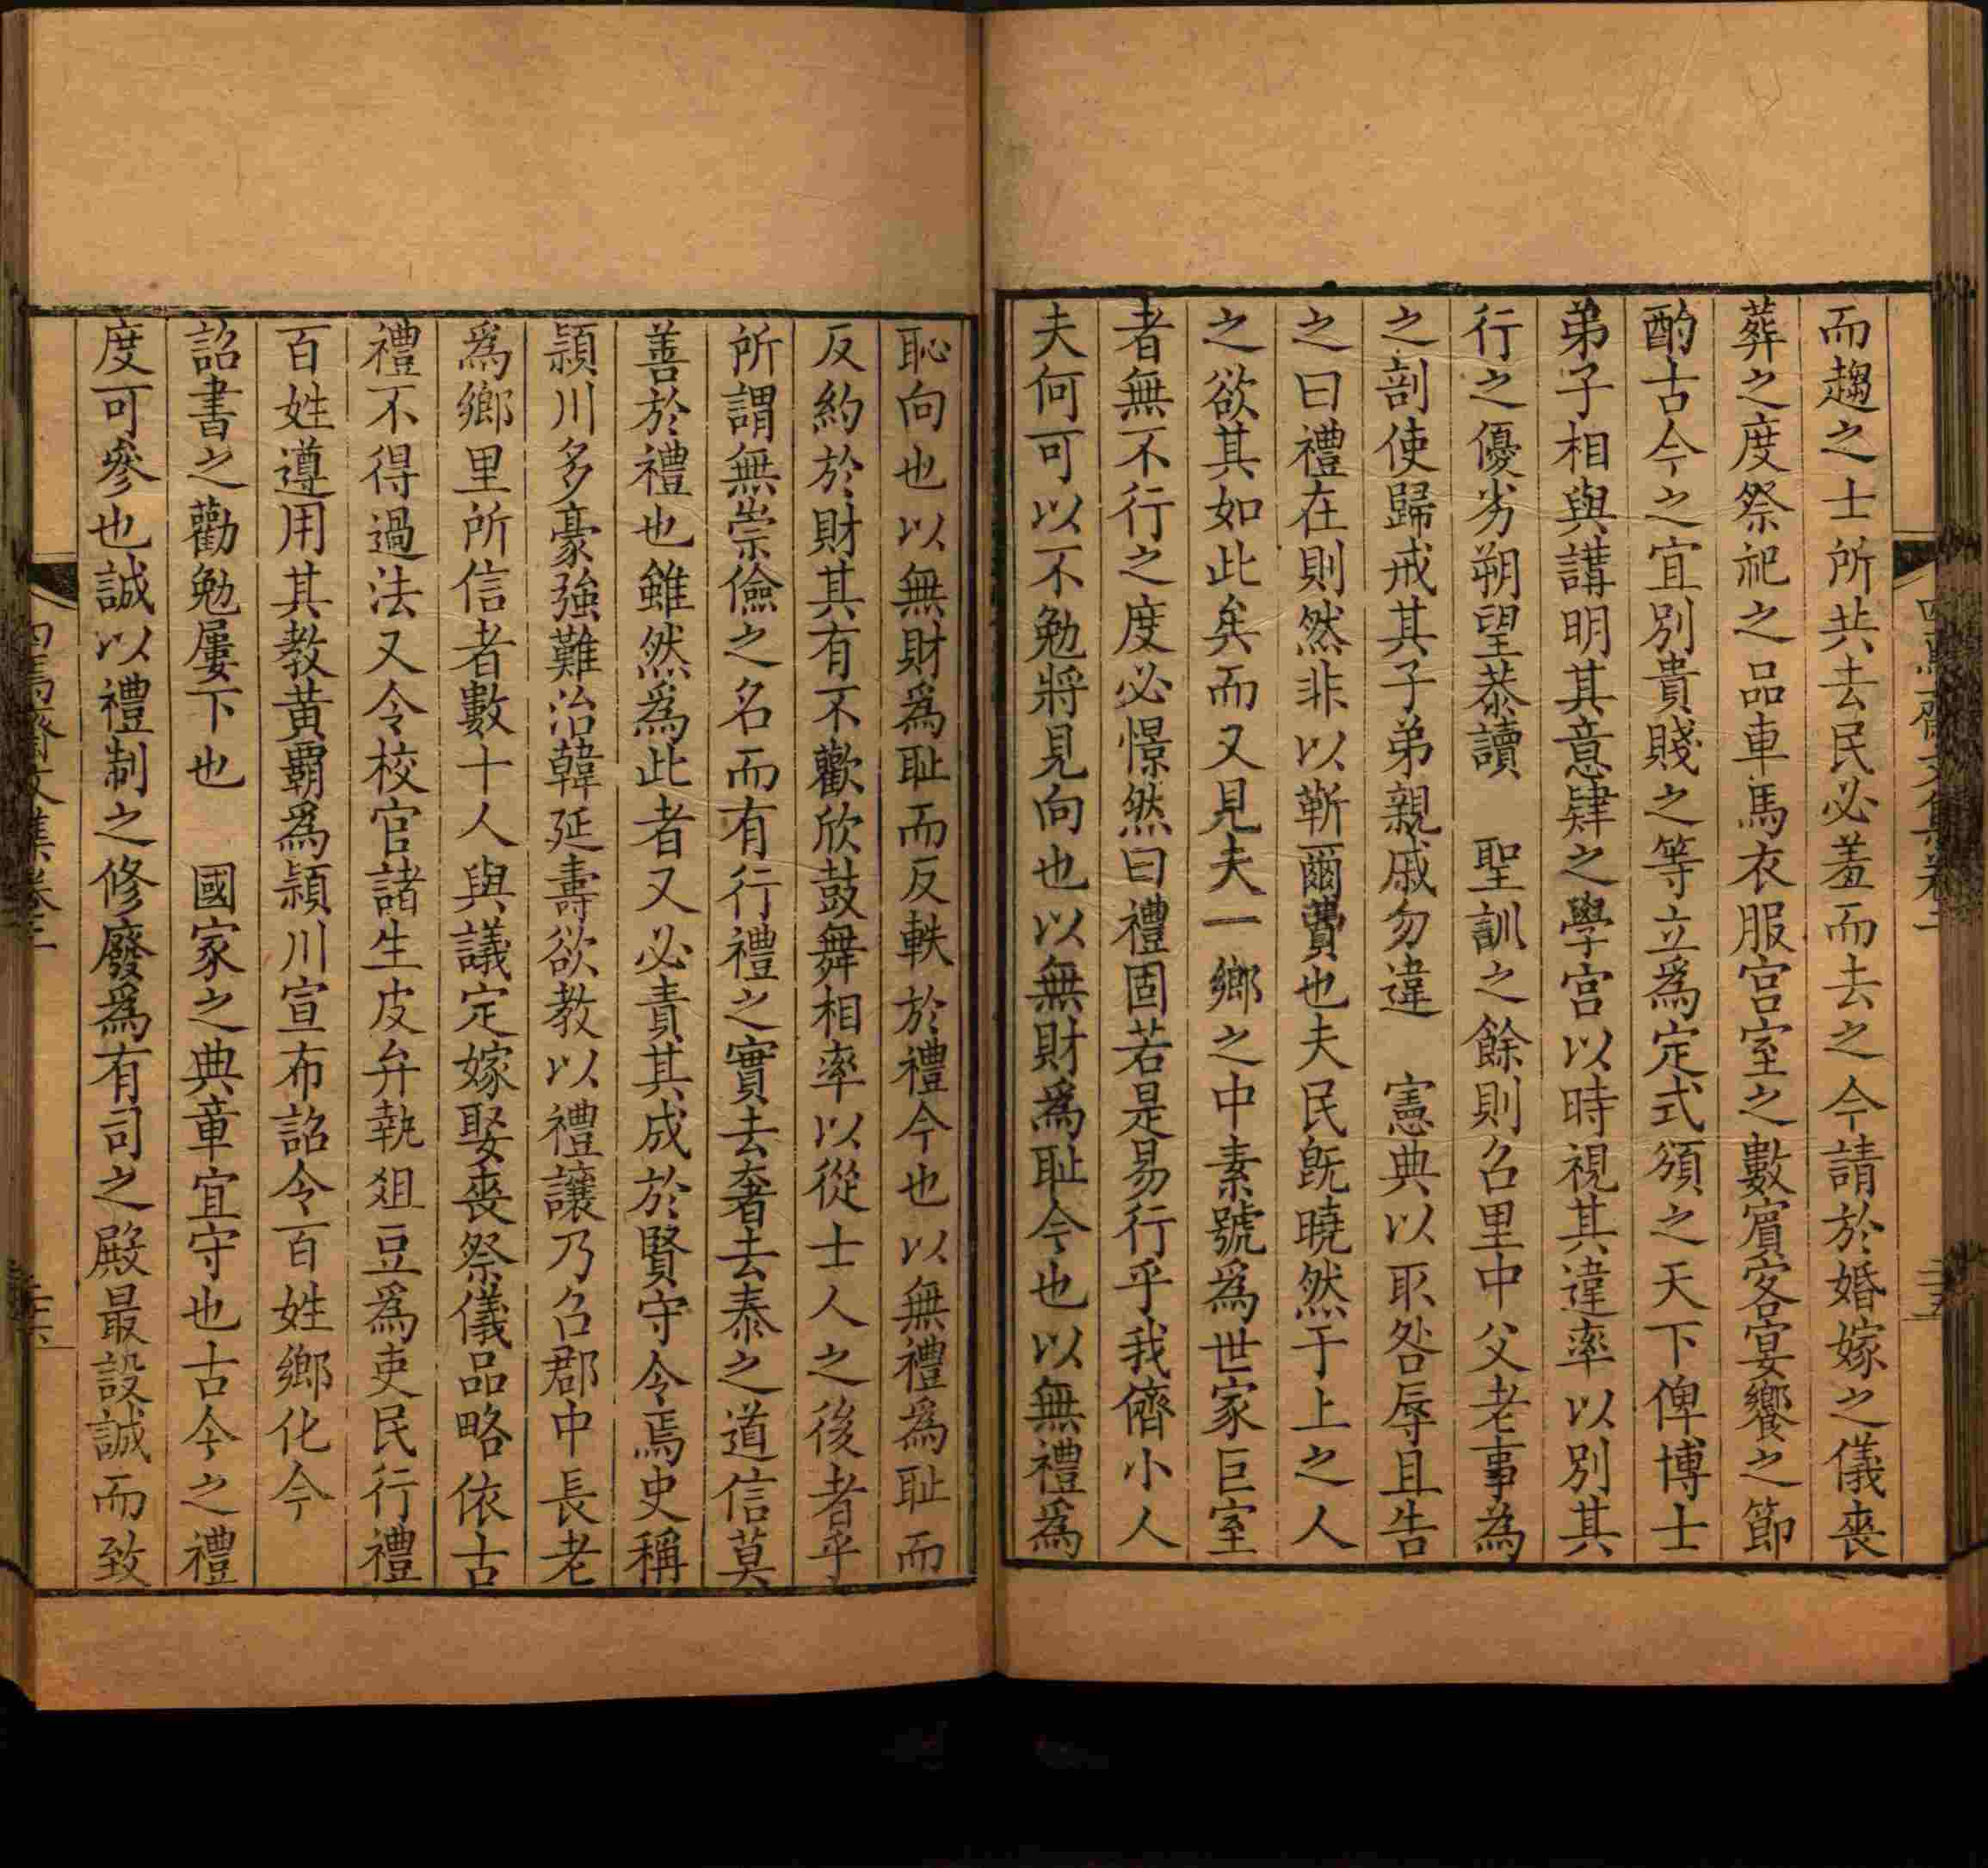 而趨之士所共去民必羞而去之今請於婚嫁之儀喪
葬之度祭祀之品車馬衣服宮室之數賓客宴饗之節
酌古今之宜別貴賤之等立為定式頒之天下俾博士
弟子相與講明其意肄之學宮以時視其違率以別其
行之優劣朔望恭讀　聖訓之餘則召里中父老事為
之剖使歸戒其子弟親戚勿違　憲典以取咎辱且告
之曰禮在則然非以靳爾費也夫民既曉然于上之人
之欲其如此矣而又見夫一鄉之中素號為世家巨室
者無不行之度必憬然曰禮固若是易行乎我儕小人
夫何可以不勉將見向也以無財為恥今也以無禮為
恥向也以無財為恥而反軼於禮今也以無禮為恥而
反約於財其有不歡欣鼓舞相率以從士人之後者乎
所謂無崇儉之名而有行禮之實去奢去泰之道信莫
善於禮也雖然為此者又必責其成於賢守令焉史稱
潁川多豪強難治韓延壽欲教以禮讓乃召郡中長老
為鄉里所信者數十人與議定嫁娶喪祭儀品略依古
禮不得過法又令校官諸生皮弁執俎豆為吏民行禮
百姓遵用其教黃霸為潁川宣布詔令百姓鄉化今
詔書之勸勉屢下也　國家之典章宜守也古今之禮
度可參也誠以禮制之修廢為有司之殿最設誠而致